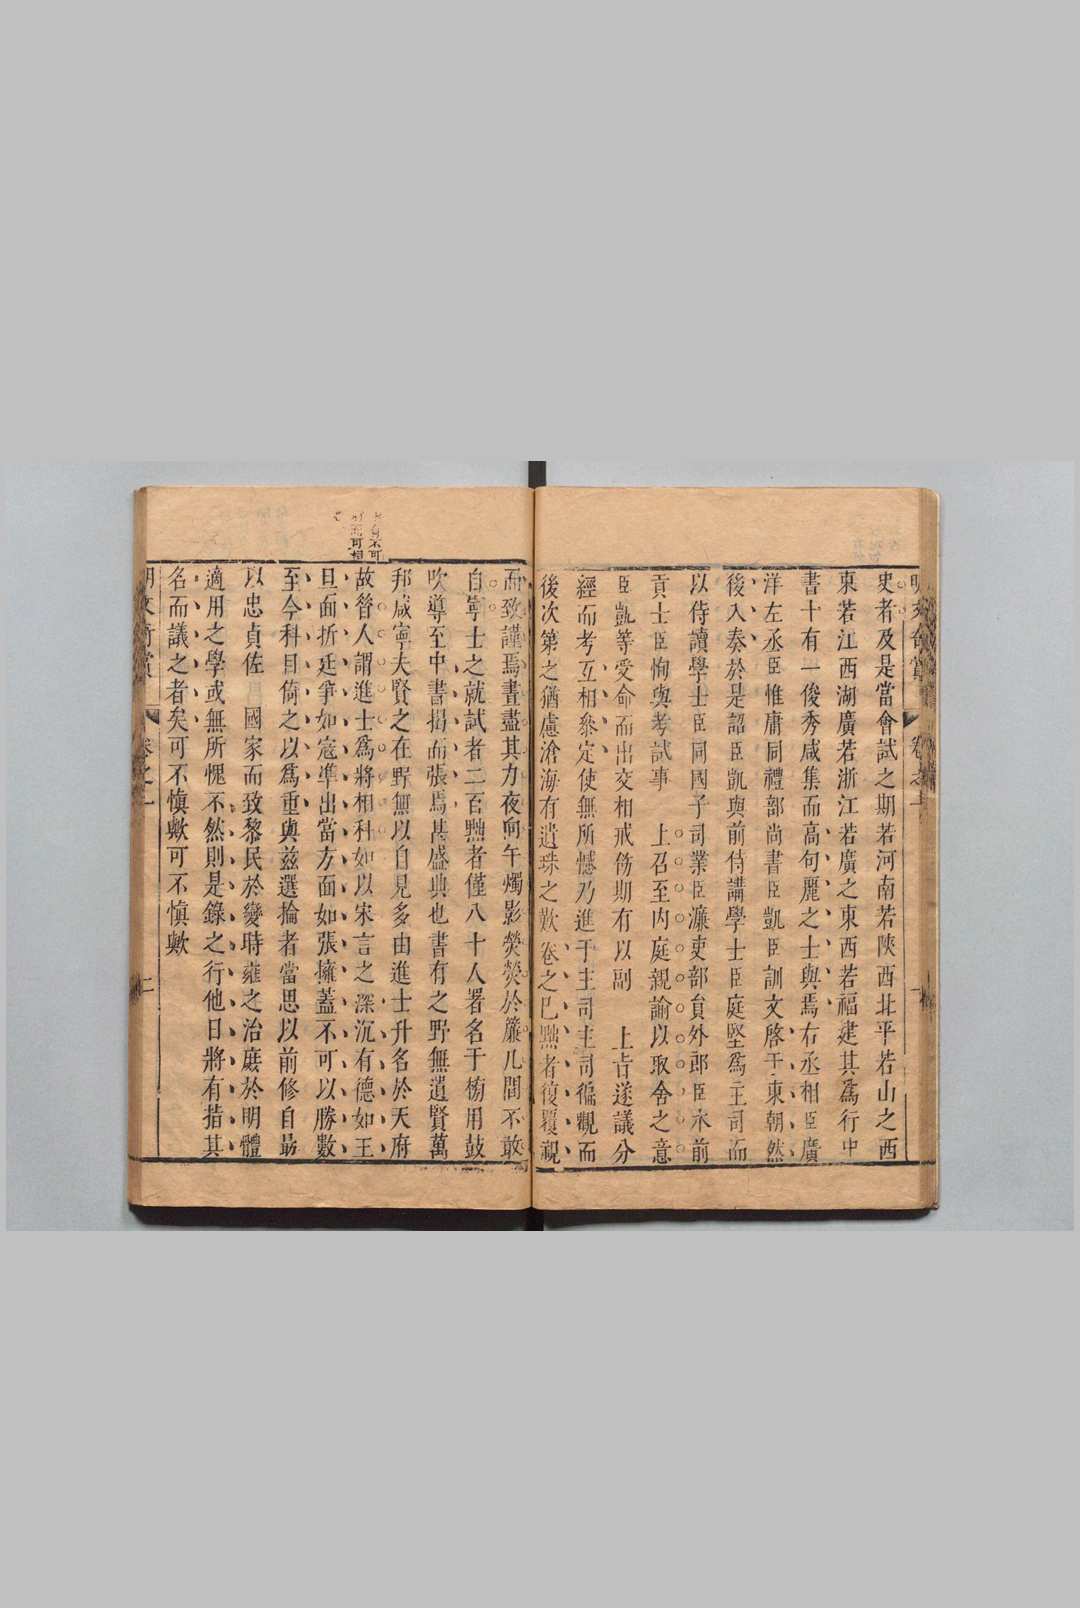 史者及是當會試之期若河南若陝西北平若山之西
東若江西湖廣若浙江若廣之東西若福建其爲行中
書十有一俊秀咸集而高句麗之士與焉右丞相臣廣
洋左丞臣惟庸同禮部尚書臣凱臣訓文啓于東朝然
後入奏於是詔臣凱與前侍講學士臣庭堅爲主司而
以侍讀學士臣同國子司業臣濂吏部員外郎臣本前
貢士臣恂與考試事 上召至内庭親諭以取舍之意
臣凱等受命而出交相戒飭期有以副 上旨遂議分
經而考互相叅定使無所憾乃進于主司主司徧觀而
後次第之猶慮滄海有遺珠之歎卷之已黜者復覆視
而致謹焉晝盡其力夜向午燭影熒熒於簾几間不敢
自寧士之就試者二百黜者僅八十人署名于榜用鼓
吹導至中書揭而張焉甚盛典也書有之野無遺賢萬
邦咸寧夫賢之在野無以自見多由進士升名於天府
故昔人謂進士爲將相科如以宋言之深沉有德如王
旦面折廷爭如寇準出當方面如張擁蓋不可以勝數
至今科目倚之以爲重與兹選掄者當思以前修自勗
以忠貞佐 國家而致黎民於變時雍之治庶於明體
適用之學或無所愧不然則是錄之行他日將有指其
名而議之者矣可不愼歟可不愼歟
明文奇賞 卷之一 二